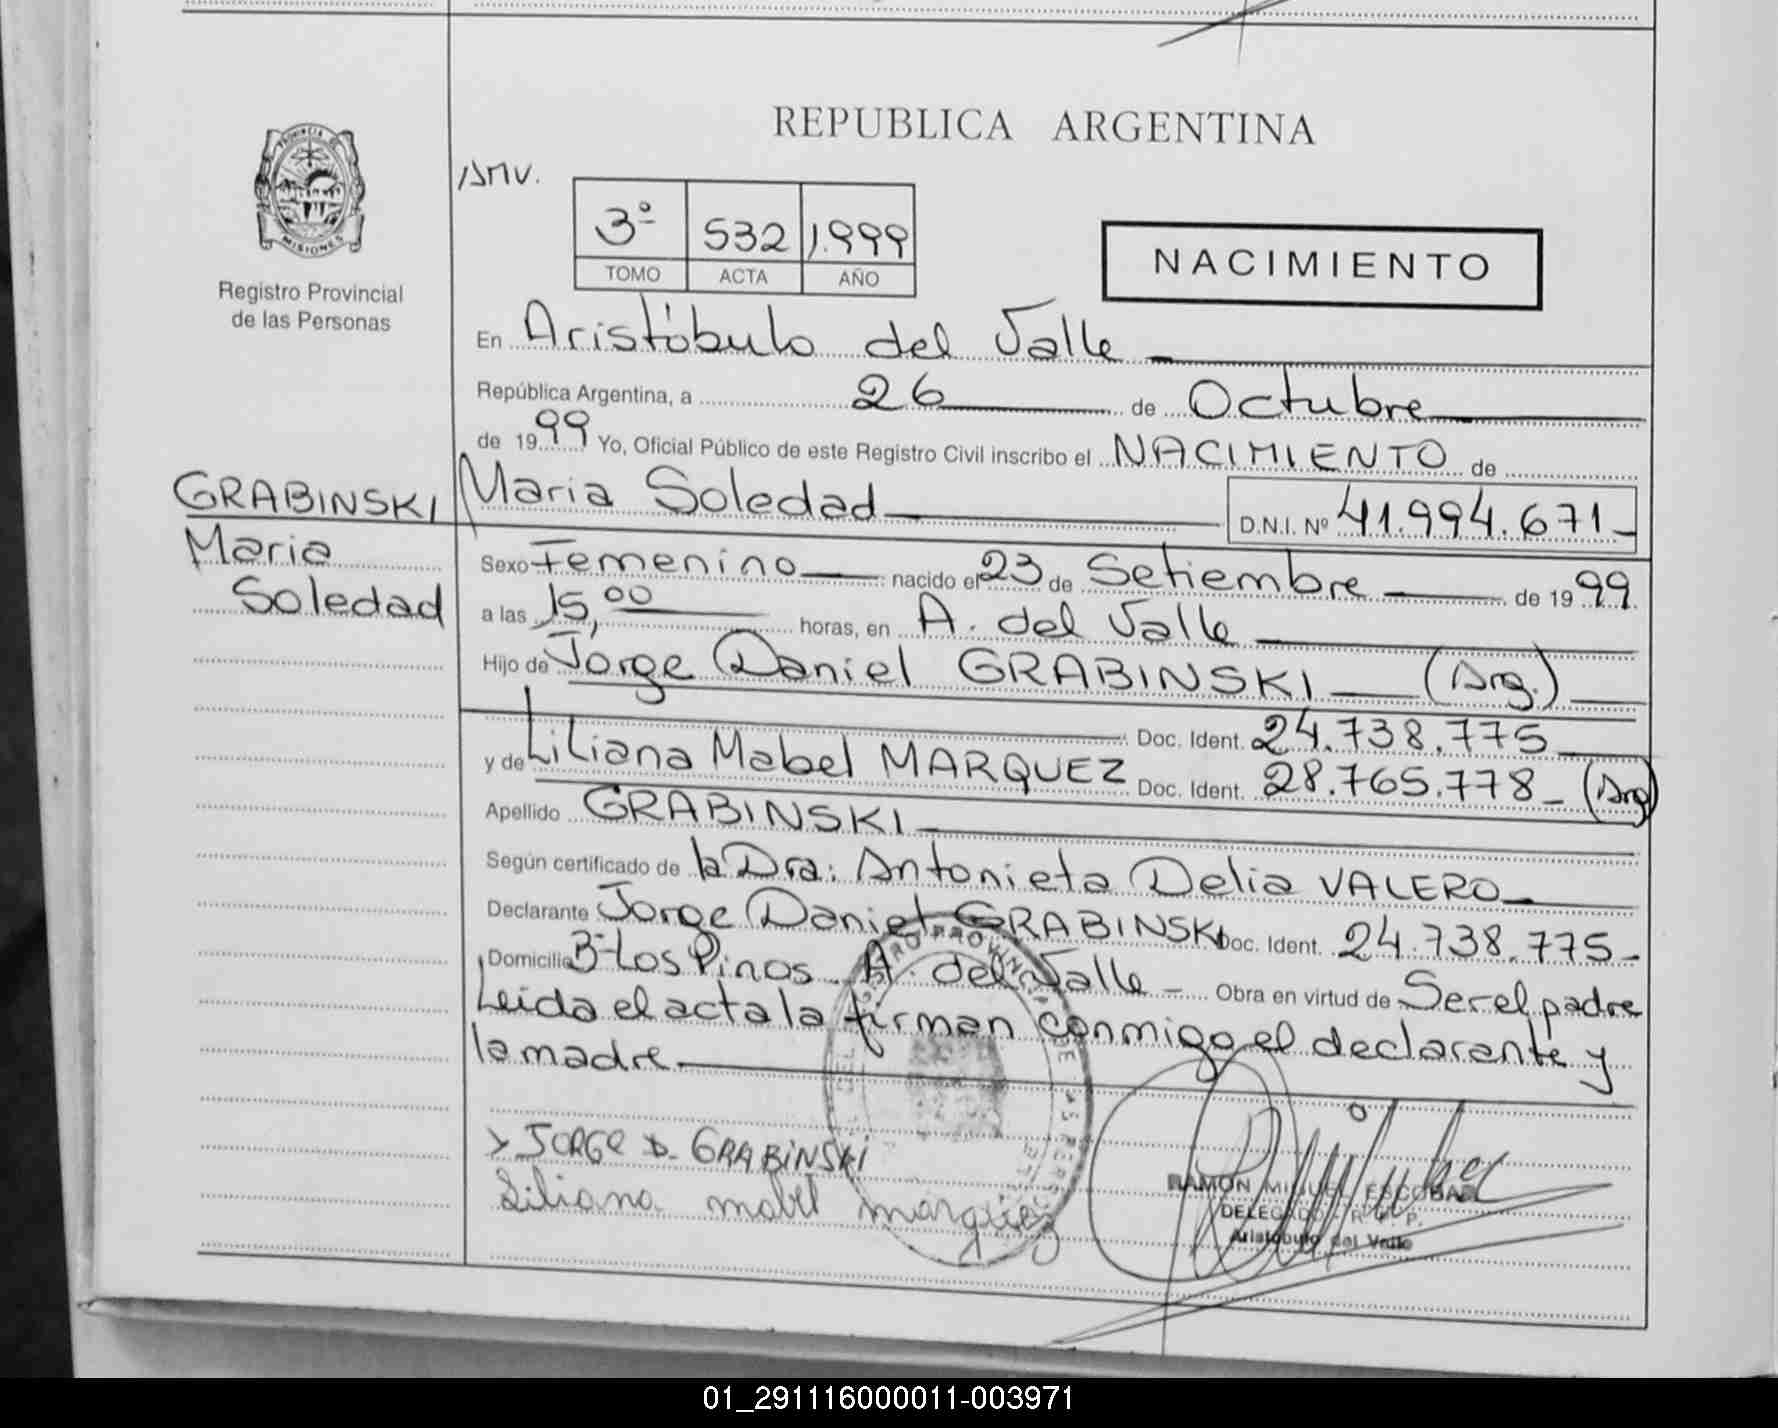 REPUBLICA ARGENTINA
PROVINCIA DE
MISIONES
Registro Provincial
de las Personas
AMV.
3º 532 1.999
TOMO ACTA AÑO
NACIMIENTO
En Aristóbulo del Valle
República Argentina, a 26 de Octubre
de 1999 Yo, Oficial Público de este Registro Civil inscribo el NACIMIENTO de
GRABINSKI
Maria
Soledad
Maria Soledad D.N.I. Nº 41.994.671
Sexo Femenino nacido el 23 de Setiembre de 1999
a las 15,00 horas, en A. del Valle
Hijo de Jorge Daniel GRABINSKI (Arg.)
Doc. Ident. 24.738.775
y de Liliana Mabel MARQUEZ Doc. Ident. 28.765.778 (Arg)
Apellido GRABINSKI
Según certificado de la Dra: Antonieta Delia VALERO
Declarante Jorge Daniel GRABINSKI Doc. Ident. 24.738.775
Domicilio Bº Los Pinos A. del Valle Obra en virtud de Ser el padre
Leida el acta la firman conmigo el declarante y
la madre
JORGE D. GRABINSKI
Liliana mabel marquez
RAMON MIGUEL ESCOBAR
DELEGADO R. P. P.
Aristobulo del Valle
01_291116000011-003971